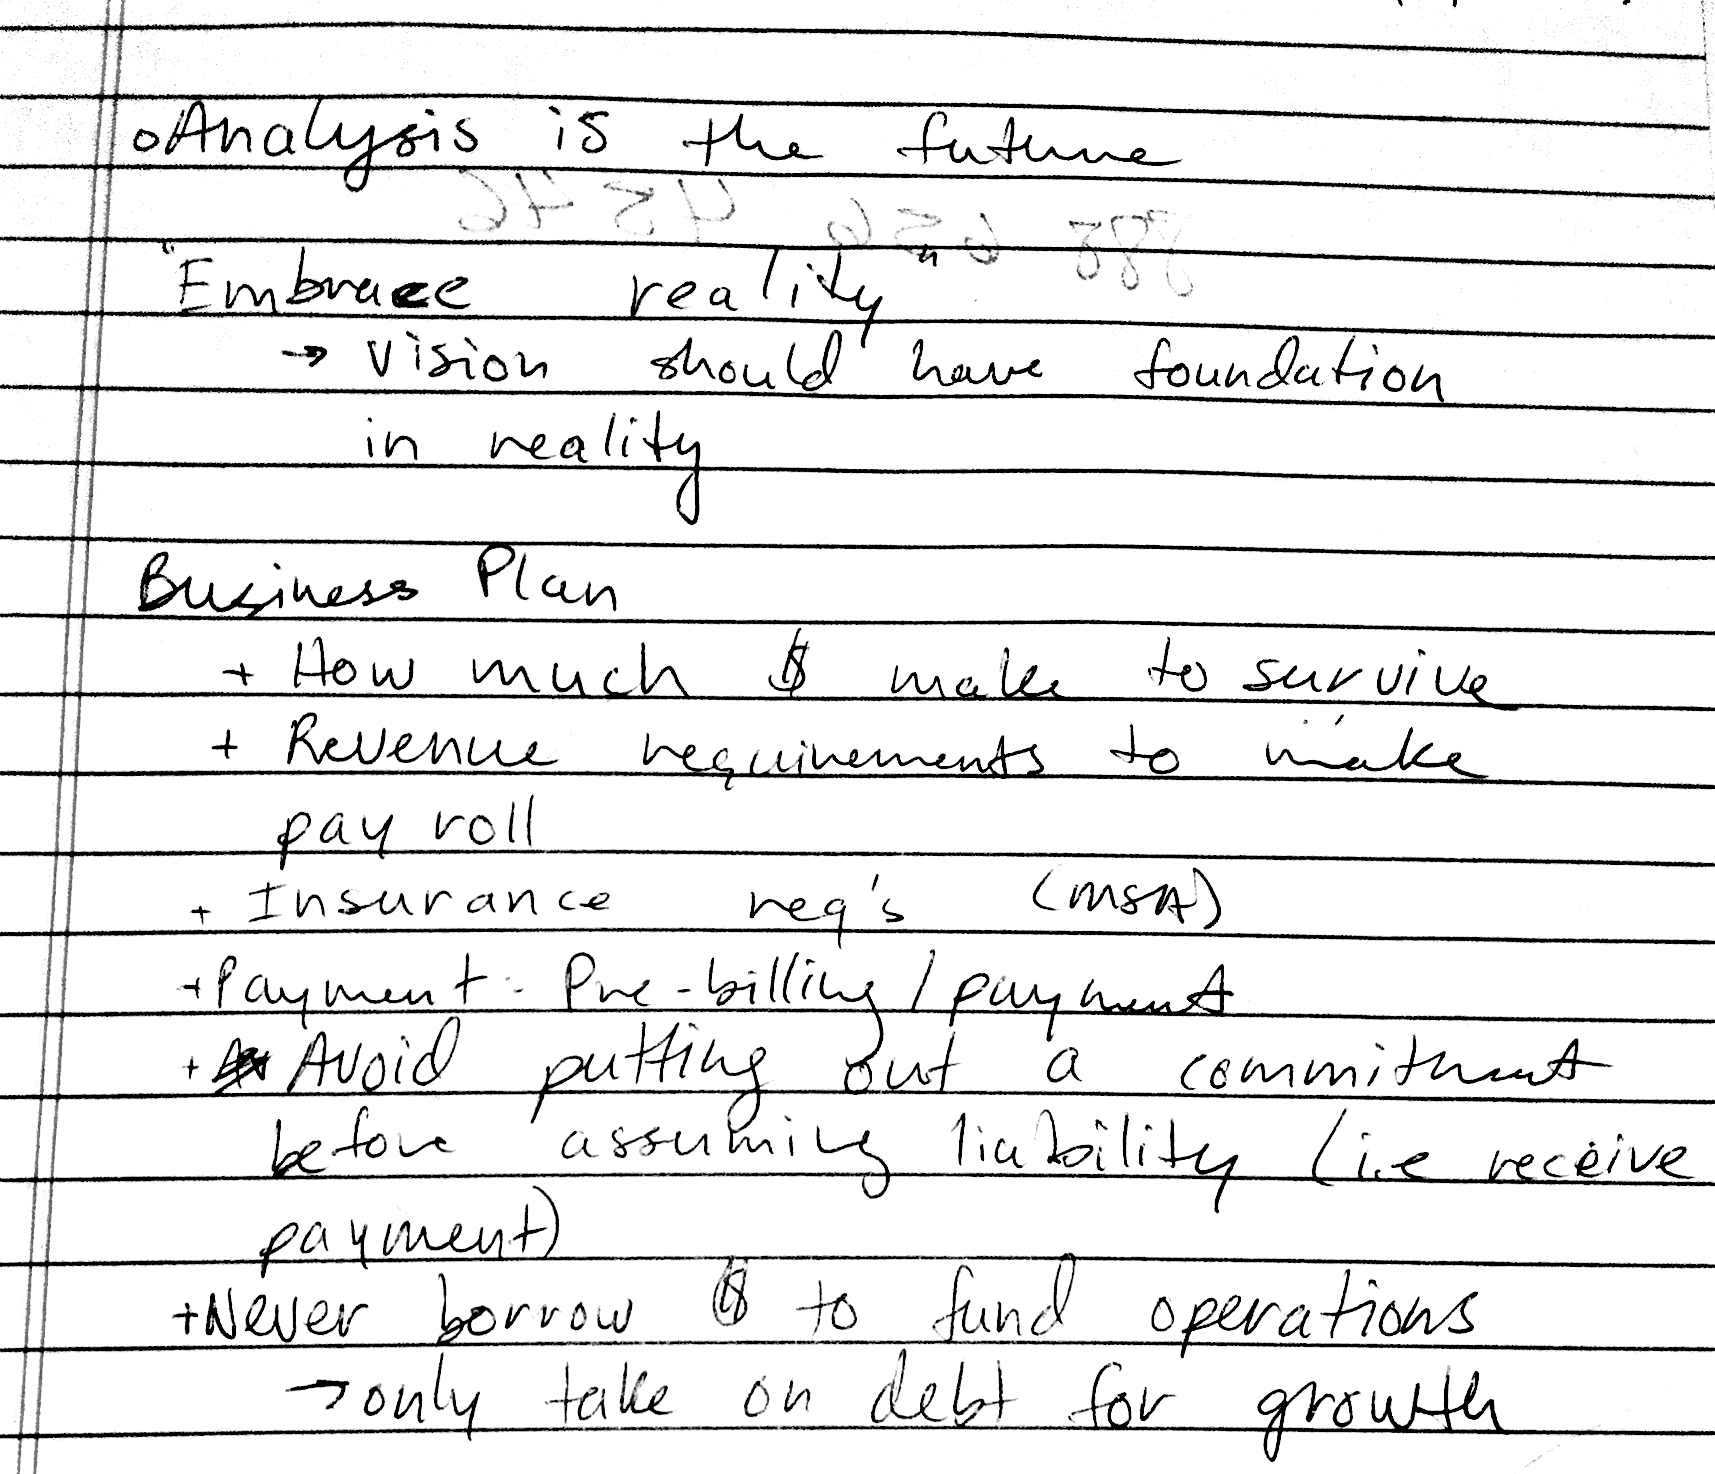 o Analysis is the future
"Embrace reality"
→ Vision should have foundation
in reality
Business Plan
+ How much $ make to survive
+ Revenue requirements to make
pay roll
+ Insurance req's (MSA)
+ Payment - Pre-billing / payment
+ Avoid putting out a commitment
before assuming liability (i.e receive
payment)
+ Never borrow $ to fund operations
→ only take on debt for growth